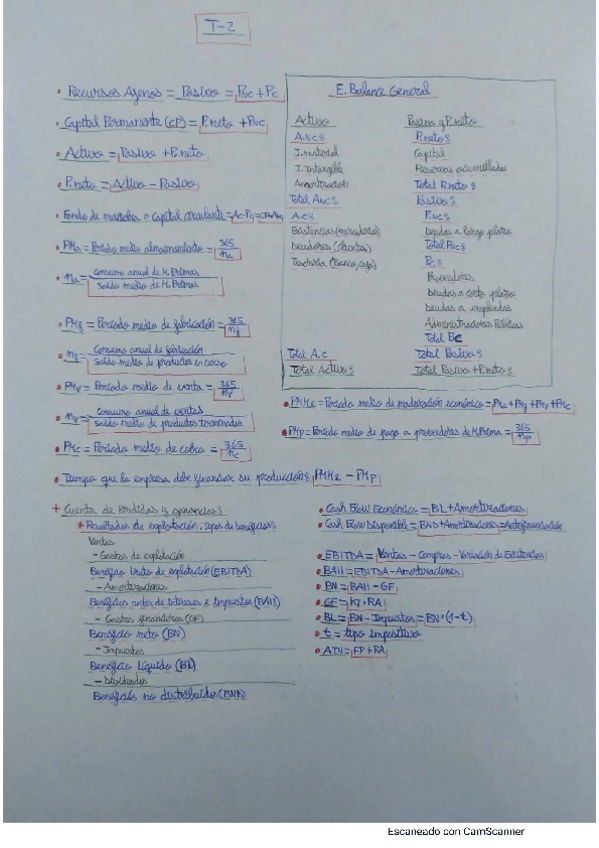 T-2
• Recursos Ajenos = Pasivo = Pnc + Pc
• Capital Permanente (CP) = P.neto + Pnc
• Activo = Pasivo + P.neto
• P.neto = Activo - Pasivo
• Fondo de maniobra o Capital circulante =
• PMa = Periodo medio almacenamiento = 365/na
• na = Consumo anual de M.Primas / Saldo medio de M.Primas
• PMf = Periodo medio de fabricación = 365/nf
• nf = Consumo anual de fabricación / Saldo medio de productos en curso
• PMv = Periodo medio de venta = 365/nv
• nv = Consumo anual de ventas / Saldo medio de productos terminados
• PMc = Periodo medio de cobro = 365/nc
E. Balance General
Activo Pasivo y P.neto
A.Nc: P.neto:
I.material Capital
I.Intangible Reservas acumuladas
Amortización Total P.neto:
Total Anc: Pasivo:
A.c: P.nc:
Existencias (mercadería) Deudas a largo plazo
Deudores (clientes) Total Pnc:
Tesorería (Banco, caja) Pc:
Proveedores
Deudas a corto plazo
Deudas a empleados
Administraciones Públicas
Total Pc
Total A.c Total Pasivo:
Total Activo: Total Pasivo + P.neto:
• PMMe = Periodo medio de maduración económico = PMa + PMf + PMv + PMc
• PMp = Periodo medio de pago a proveedores de M.Prima = 365/np
• Tiempo que la empresa debe financiar su producción: PMMe - PMp
+ Cuenta de Pérdidas y ganancias:
+ Resultados de explotación, tipos de beneficios:
Ventas
- Gastos de explotación
Beneficio bruto de explotación (EBITDA)
- Amortizaciones
Beneficios antes de Intereses e Impuestos (BAII)
- Gastos financieros (GF)
Beneficio neto (BN)
- Impuestos
Beneficio líquido (BL)
- Dividendos
Beneficios no distribuidos (BND)
• Cash Flow Económico = BL + Amortizaciones
• Cash Flow Disponible = BND + Amortizaciones = Autofinanciación
• EBITDA = Ventas - Compras - Variación de Existencias
• BAII = EBITDA - Amortizaciones
• BN = BAII - GF
• GF = Ki · RA
• BL = BN - Impuestos = BN · (1-t)
• t = tipo impositivo
• ATN = FP + RA
Escaneado con CamScanner